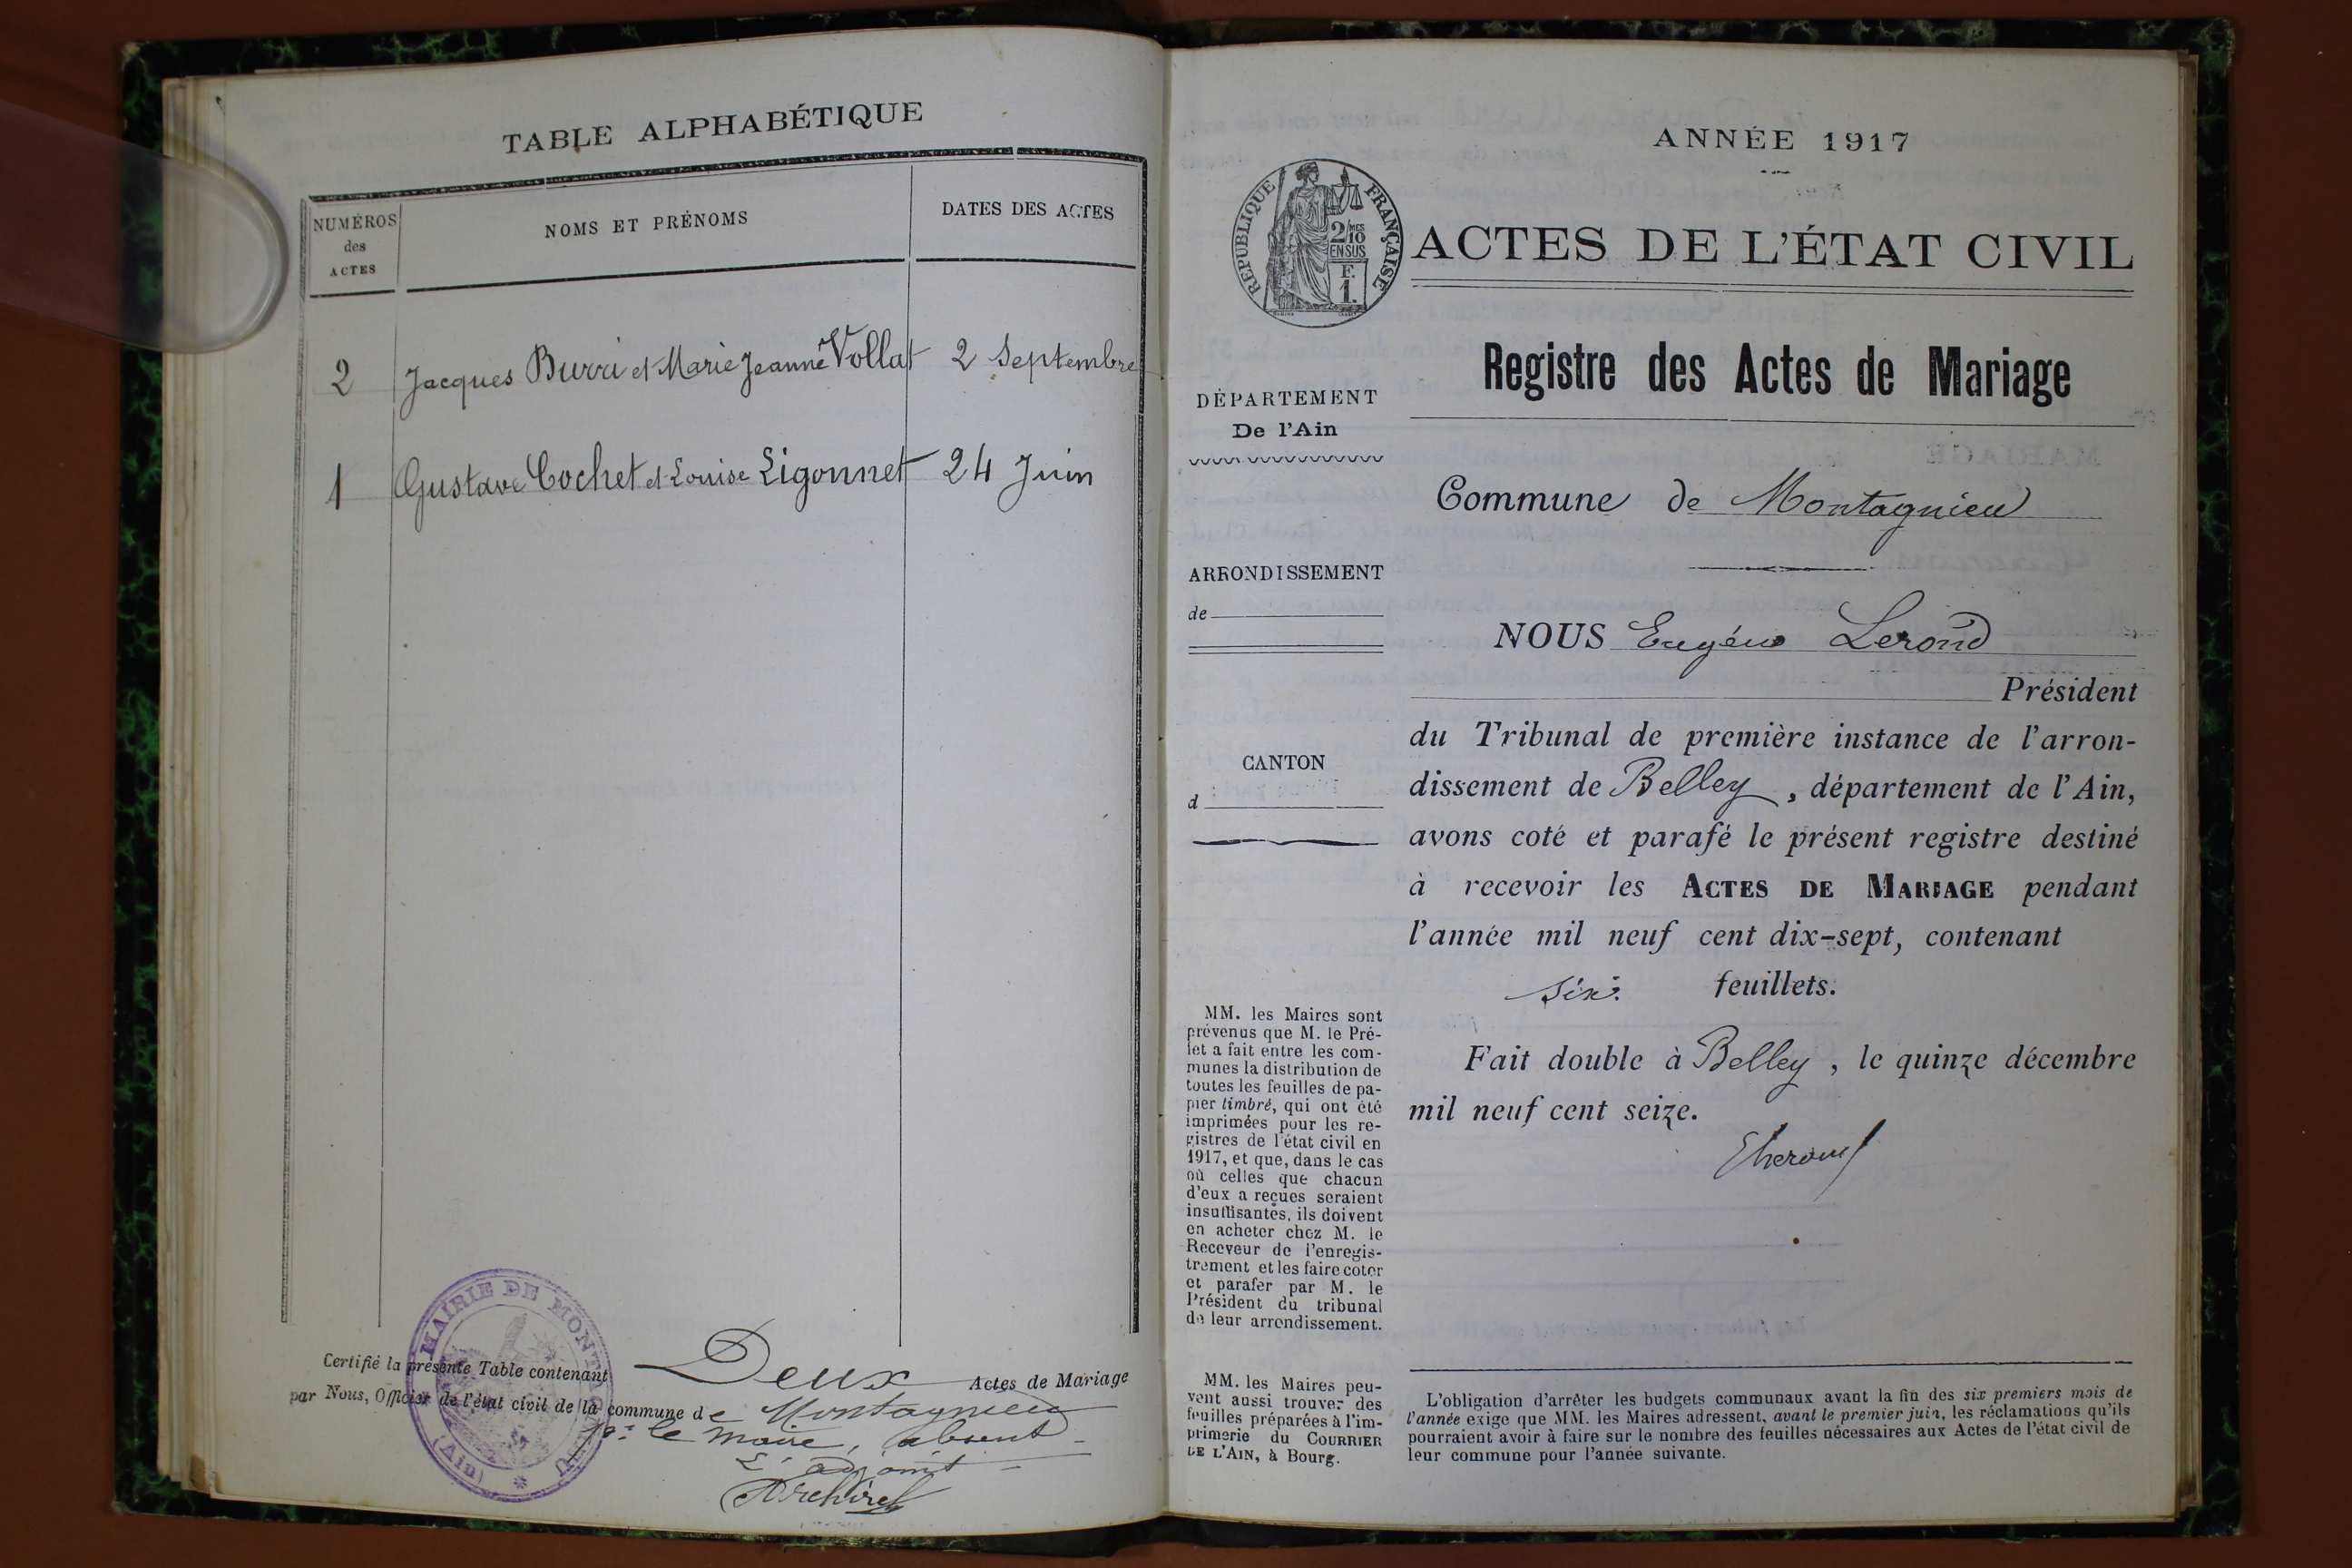 TABLE ALPHABÉTIQUE
NUMÉROS
des
ACTES
NOMS ET PRÉNOMS
DATES DES ACTES
2 Jacques Burri et Marie Jeanne Vollat 2 Septembre
1 Gustave Cochet et Louise Ligonnet 24 Juin
MAIRIE DE MONTAGNIEU
(Ain)
Certifié la présente Table contenant Deux Actes de Mariage
par Nous, Officier de l'état civil de la commune de Montagnieu
Pr le maire, absent
L'adjoint
ANNÉE 1917
RÉPUBLIQUE FRANÇAISE
2/10MES
EN SUS
F.
1.
ACTES DE L'ÉTAT CIVIL
Registre des Actes de Mariage
DÉPARTEMENT
De l'Ain
ARRONDISSEMENT
de
CANTON
d
Commune de Montagnieu
NOUS Eugène Lerond
Président
du Tribunal de première instance de l'arron-
dissement de Belley, département de l'Ain,
avons coté et parafé le présent registre destiné
à recevoir les ACTES DE MARIAGE pendant
l'année mil neuf cent dix-sept, contenant
six feuillets.
Fait double à Belley, le quinze décembre
mil neuf cent seize.
MM. les Maires sont
prévenus que M. le Pré-
fet a fait entre les com-
munes la distribution de
toutes les feuilles de pa-
pier timbré, qui ont été
imprimées pour les re-
gistres de l'état civil en
1917, et que, dans le cas
où celles que chacun
d'eux a reçues seraient
insuffisantes, ils doivent
en acheter chez M. le
Receveur de l'enregis-
trement et les faire coter
et parafer par M. le
Président du tribunal
de leur arrondissement.
MM. les Maires peu-
vent aussi trouver des
feuilles préparées à l'im-
primerie du COURRIER
DE L'AIN, à Bourg.
L'obligation d'arrêter les budgets communaux avant la fin des six premiers mois de
l'année exige que MM. les Maires adressent, avant le premier juin, les réclamations qu'ils
pourraient avoir à faire sur le nombre des feuilles nécessaires aux Actes de l'état civil de
leur commune pour l'année suivante.